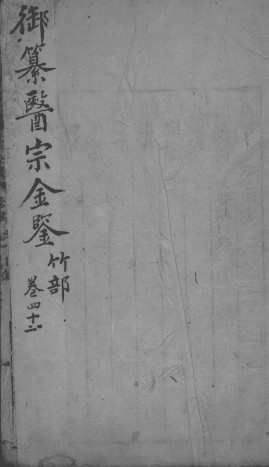 御纂醫宗金鑒
竹部
卷四十二